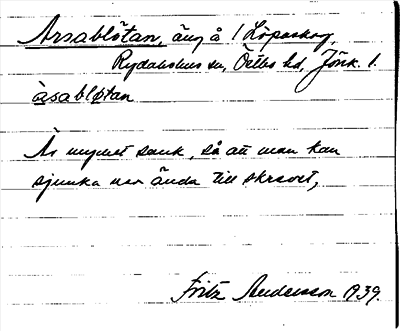 Årsablötan, äng å 1 Löpaskog,
Rydaholms sn, Östbo hd, Jönk. l.
àsabløtan
Är mycket sank, så att man kan
sjunka ner ända till skrevet,
Fritz Andersson 1939.